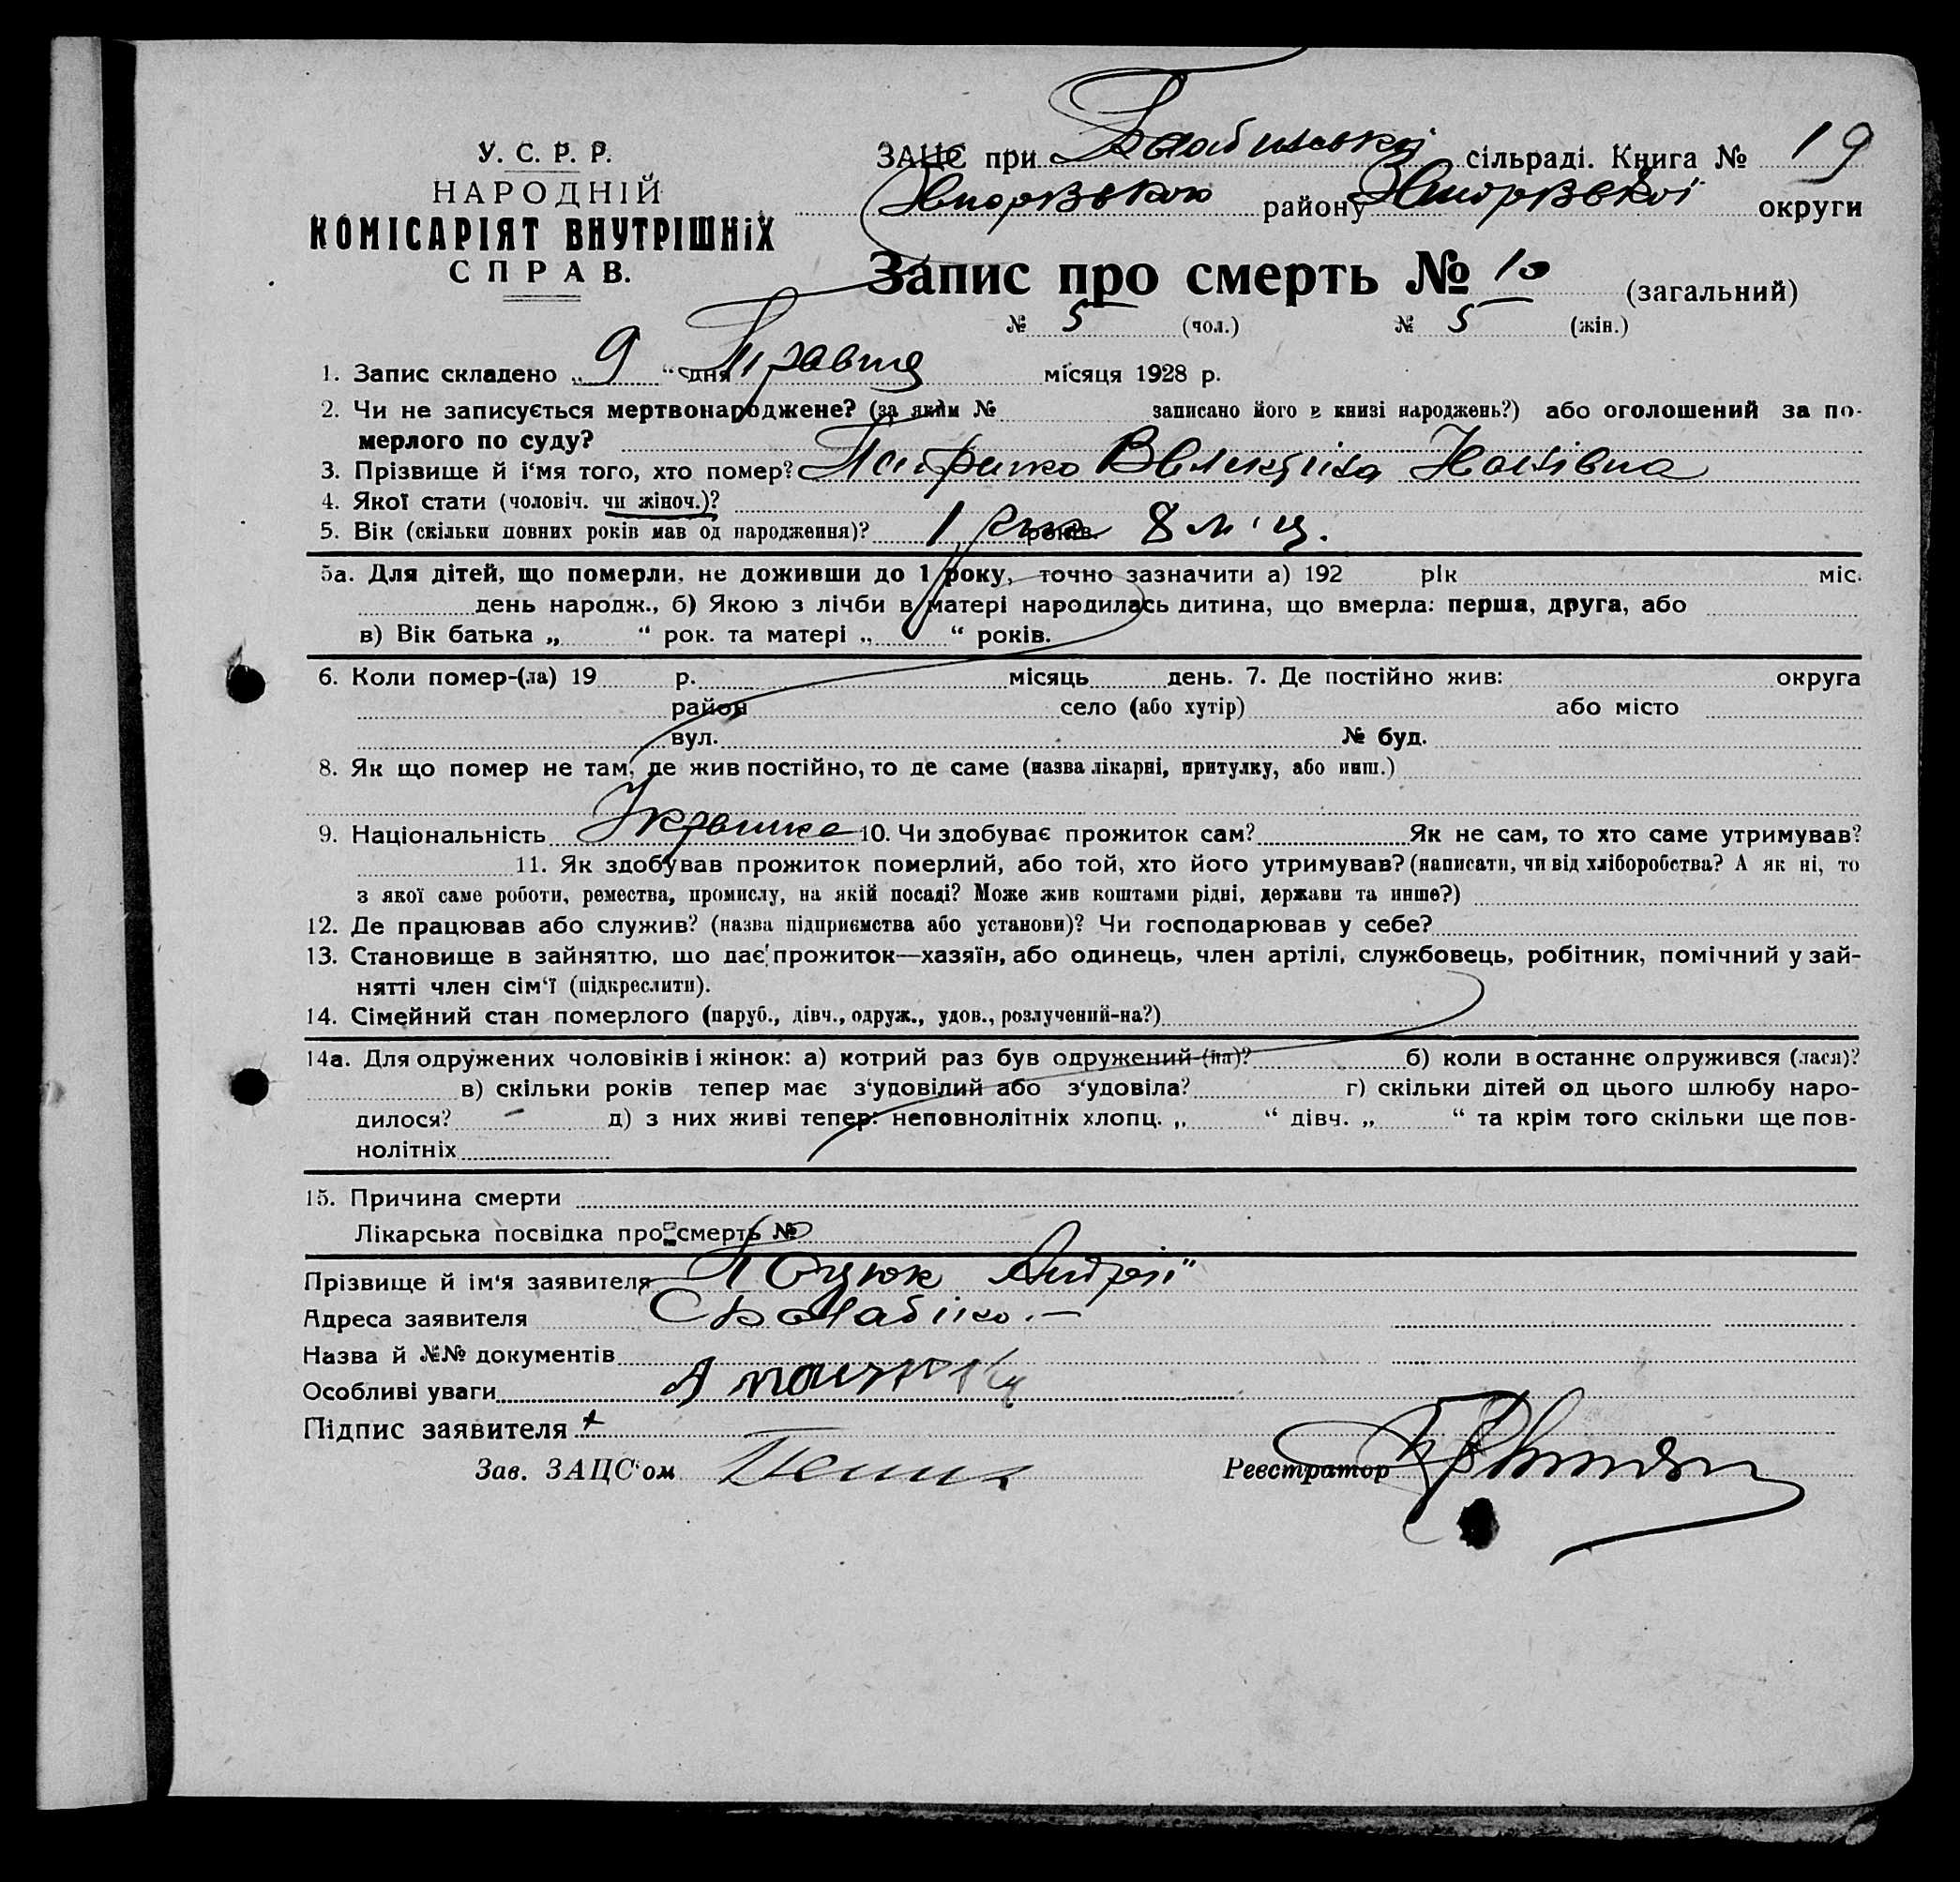 У. С. Р. Р.
НАРОДНІЙ
КОМІСАРІЯТ ВНУТРІШНіХ
СПРАВ.
ЗАЦС при сільраді. Книга № 19
району округи
Запис про смерть № 10 (загальний)
№ 5 (чол.) № 5 (жін.)
1. Запис складено „ 9 “ дня Травня місяця 1928 р.
2. Чи не записується мертвонароджене? (за яким № записано його в книзі народжень?) або оголошений за по-
мерлого по суду?
3. Прізвище й і'мя того, хто помер?
4. Якої стати (чоловіч. чи жіноч.)?
5. Вік (скільки повних років мав од народження)? 1 рік років. 8 міц.
5а. Для дітей, що померли, не доживши до 1 року, точно зазначити а) 192 рік міс.
день народж., б) Якою з лічби в матері народилась дитина, що вмерла: перша, друга, або
в) Вік батька „ “ рок. та матері „ “ років.
6. Коли помер-(ла) 19 р. місяць день. 7. Де постійно жив: округа
район село (або хутір) або місто
вул. № буд.
8. Як що помер не там, де жив постійно, то де саме (назва лікарні, притулку, або инш.)
9. Національність Українка 10. Чи здобуває прожиток сам? Як не сам, то хто саме утримував?
11. Як здобував прожиток померлий, або той, хто його утримував? (написати, чи від хліборобства? А як ні, то
з якої саме роботи, ремества, промислу, на якій посаді? Може жив коштами рідні, держави та инше?)
12. Де працював або служив? (назва підприємства або установи)? Чи господарював у себе?
13. Становище в зайняттю, що дає прожиток—хазяїн, або одинець, член артілі, службовець, робітник, помічний у зай-
нятті член сім'ї (підкреслити).
14. Сімейний стан померлого (паруб., дівч., одруж., удов., розлучений-на?)
14а. Для одружених чоловіків і жінок: а) котрий раз був одружений (на)? б) коли в останнє одружився (лася)?
в) скільки років тепер має з'удовілий або з'удовіла? г) скільки дітей од цього шлюбу наро-
дилося? д) з них живі тепер: неповнолітніх хлопц. „ “ дівч. „ “ та крім того скільки ще пов-
нолітніх
15. Причина смерти
Лікарська посвідка про смерть №
Прізвище й ім'я заявителя Андрій
Адреса заявителя
Назва й №№ документів
Особливі уваги
Підпис заявителя +
Зав. ЗАЦС'ом Реєстратор